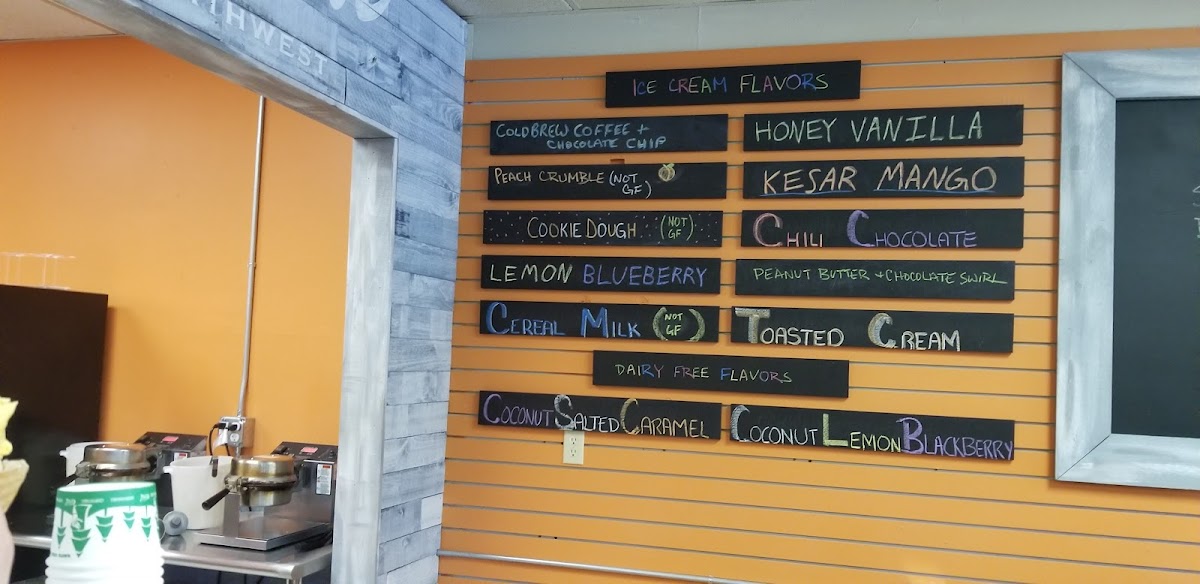 THWEST
ICE CREAM FLAVORS
COLDBREW COFFEE +
CHOCOLATE CHIP
HONEY VANILLA
PEACH CRUMBLE (NOT
GF)
KESAR MANGO
COOKIE DOUGH (NOT
GF)
CHILI CHOCOLATE
LEMON BLUEBERRY
PEANUT BUTTER + CHOCOLATE SWIRL
CEREAL MILK (NOT
GF)
TOASTED CREAM
DAIRY FREE FLAVORS
COCONUT SALTED CARAMEL
COCONUT LEMON BLACKBERRY